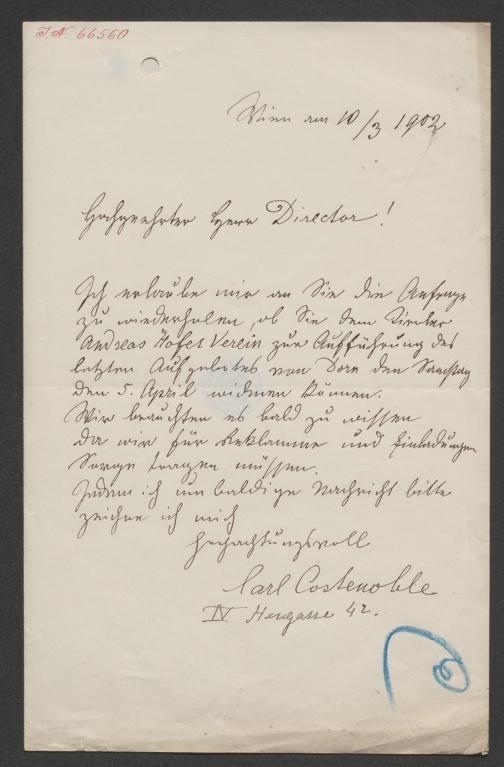 J.N. 66560
Wien am 10/3 1902
Hochgeehrter Herr Director!
Ich erlaube mir an Sie die Anfrage
zu wiederholen, ob Sie dem Tiroler
Andreas Hofer Verein zur Aufführung des
letzten Aufgebotes von Dorn den Samstag
den 5. April widmen können.
Wir brauchten es bald zu wissen
da wir für Reklamme und Einladungen
Sorge tragen müssen.
Indem ich um baldige Nachricht bitte
zeichne ich mich
hochachtungsvoll
Carl Costenoble
IV Heugasse 42.